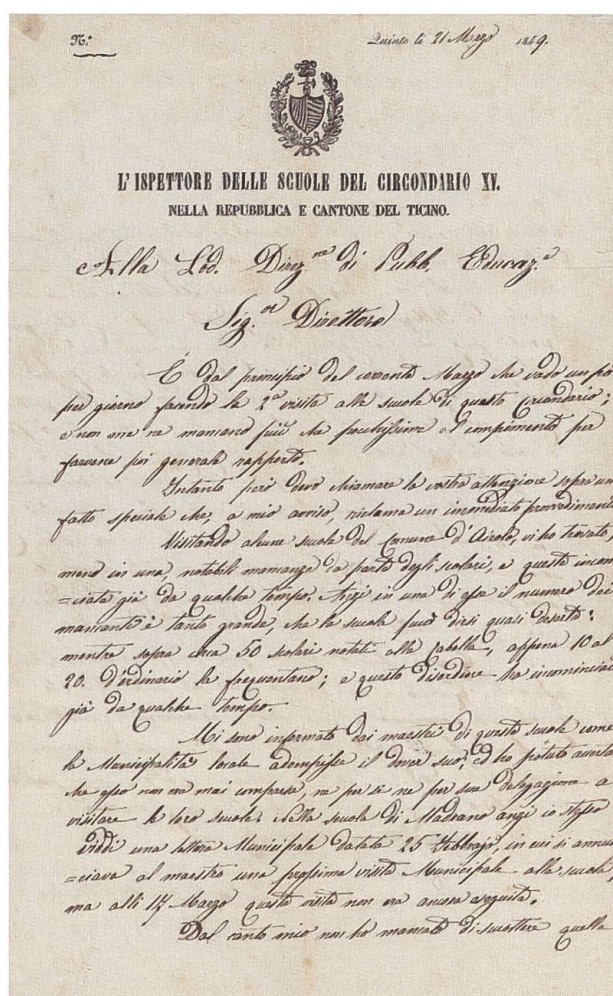 N.º
Quinto li 21 Marzo 1849.
L'ISPETTORE DELLE SCUOLE DEL CIRCONDARIO XV.
NELLA REPUBBLICA E CANTONE DEL TICINO.
Alla Lod. Direz.ne di Pubb. Educaz.e
Sig.or Direttore
È dal principio del corrente Marzo che vado un po'
per giorno facendo la 2.a visita alle scuole di questo Circondario;
e non me ne mancano più che pochissime al compimento per
farvene poi generale rapporto.
Intanto però devo chiamare la vostra attenzione sopra un
fatto speciale che, a mio avviso, reclama un immediato provvedimento
Visitando alcune scuole del Comune d'Airolo, vi ho trovato,
meno in una, notabili mancanze da parte degli scolari, e queste incom
=ciate già da qualche tempo. Anzi in una di esse il numero dei
mancanti è tanto grande, che la scuola può dirsi quasi deserta:
mentre sopra circa 50 scolari notati alla tabella, appena 10 al
20. d'ordinario la frequentano; e questo disordine ha incominciat
già da qualche tempo.
Mi sono informato dai maestri di queste scuole come
la Municipalità locale adempisse il dover suo; ed ho potuto
che essa non era mai comparsa, ne per se ne per sua delegazione a
visitare le loro scuole. Nella scuola di Madrano anzi io stesso
viddi una lettera Municipale datata 25 Febbrajo, in cui si annun
=ciava al maestro una prossima visita Municipale alla scuola,
ma alli 17 Marzo questa visita non era ancora eseguita.
Dal canto mio non ho mancato di scuottere quella